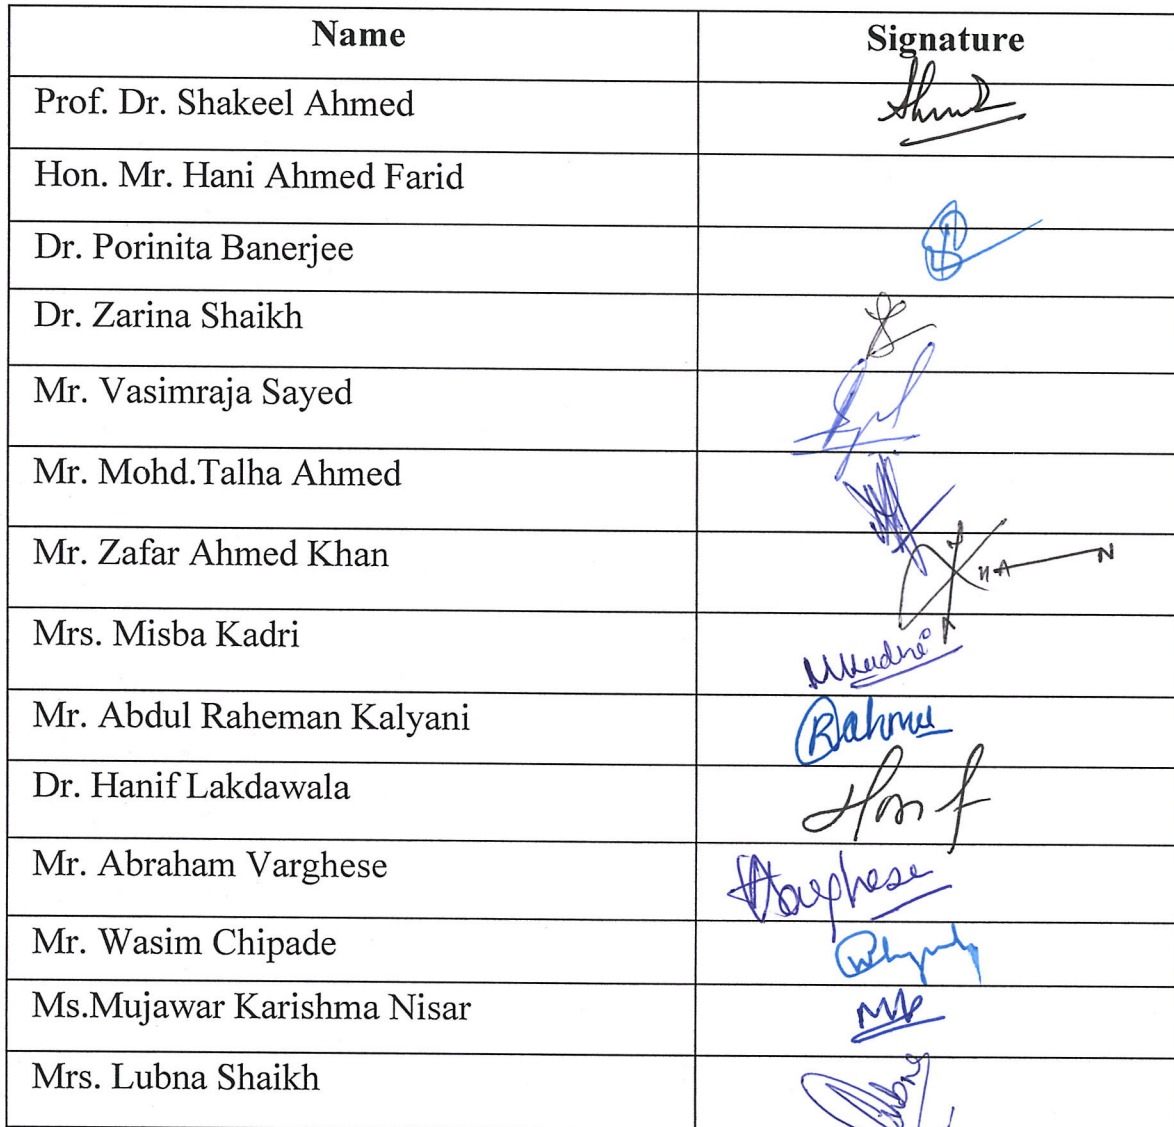 Name Signature
Prof. Dr. Shakeel Ahmed
Hon. Mr. Hani Ahmed Farid
Dr. Porinita Banerjee
Dr. Zarina Shaikh
Mr. Vasimraja Sayed
Mr. Mohd.Talha Ahmed
Mr. Zafar Ahmed Khan
Mrs. Misba Kadri MKadri
Mr. Abdul Raheman Kalyani
Dr. Hanif Lakdawala Hanif
Mr. Abraham Varghese Varghese
Mr. Wasim Chipade
Ms.Mujawar Karishma Nisar
Mrs. Lubna Shaikh Lubna